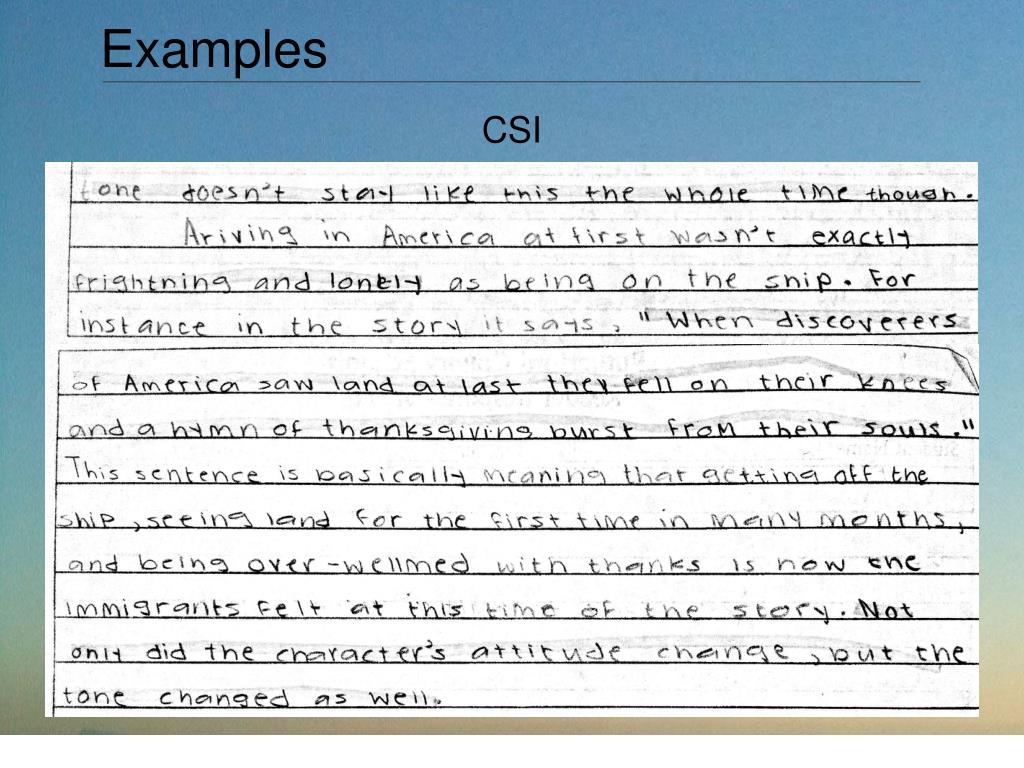 Examples
CSI
tone doesn't stay like this the whole time though.
Ariving in America at first wasn't exactly
frightning and lonely as being on the ship. For
instance in the story it says, "When discoverers
of America saw land at last they fell on their knees
and a hymn of thanksgiving burst from their souls."
This sentence is basically meaning that getting off the
ship, seeing land for the first time in many months,
and being over-wellmed with thanks is how the
immigrants felt at this time of the story. Not
only did the character's attitude change, but the
tone changed as well.